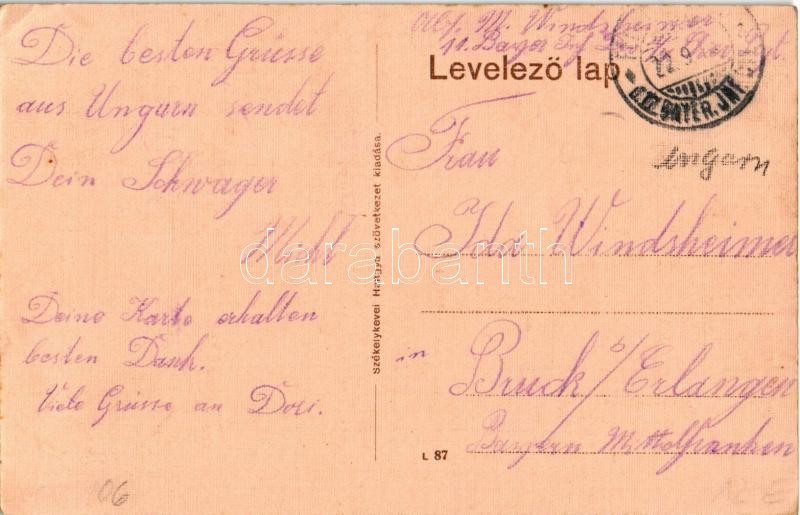 Abs. M. Windsheimer
11. Bayer. Inf.
Levelező lap
22. 9
BAYER. INF
Ungarn
Die besten Grüsse
aus Ungarn sendet
Dein Schwager
Deine Karte erhalten
besten Dank.
Viele Grüsse an Dori.
Székelykevei Hangya szövetkezet kiadása.
Frau
Ida Windsheimer
in Bruck b/Erlangen
Bayern Mittelfranken
L 87
06
darabanth